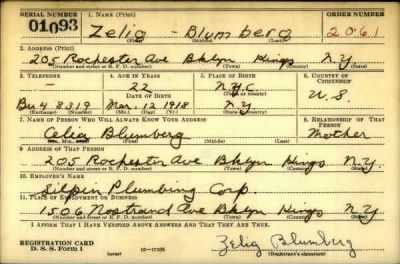 SERIAL NUMBER 1. NAME (Print) ORDER NUMBER
01093 Zelig - Blumberg 2061
(First) (Middle) (Last)
2. ADDRESS (Print)
205 Rochester Ave Bklyn Kings N.Y.
(Number and street or R. F. D. number) (Town) (County) (State)
3. TELEPHONE 4. AGE IN YEARS 5. PLACE OF BIRTH 6. COUNTRY OF CITIZENSHIP
22 N.Y.C
DATE OF BIRTH (Town or county) U.S.
Bu 4 8319 Mar. 12 1918 N.Y.
(Exchange) (Number) (Mo.) (Day) (Yr.) (State or country)
7. NAME OF PERSON WHO WILL ALWAYS KNOW YOUR ADDRESS 8. RELATIONSHIP OF THAT PERSON
Celia Blumberg Mother
(First) (Middle) (Last)
9. ADDRESS OF THAT PERSON
205 Rochester Ave Bklyn Kings N.Y.
(Number and street or R. F. D. number) (Town) (County) (State)
10. EMPLOYER'S NAME
Silpen Plumbing Corp.
11. PLACE OF EMPLOYMENT OR BUSINESS
1506 Nostrand Ave Bklyn Kings N.Y
(Number and street or R. F. D. number) (Town) (County) (State)
I AFFIRM THAT I HAVE VERIFIED ABOVE ANSWERS AND THAT THEY ARE TRUE.
REGISTRATION CARD
D. S. S. FORM 1 (over) Zelig Blumberg
(Registrant's signature)